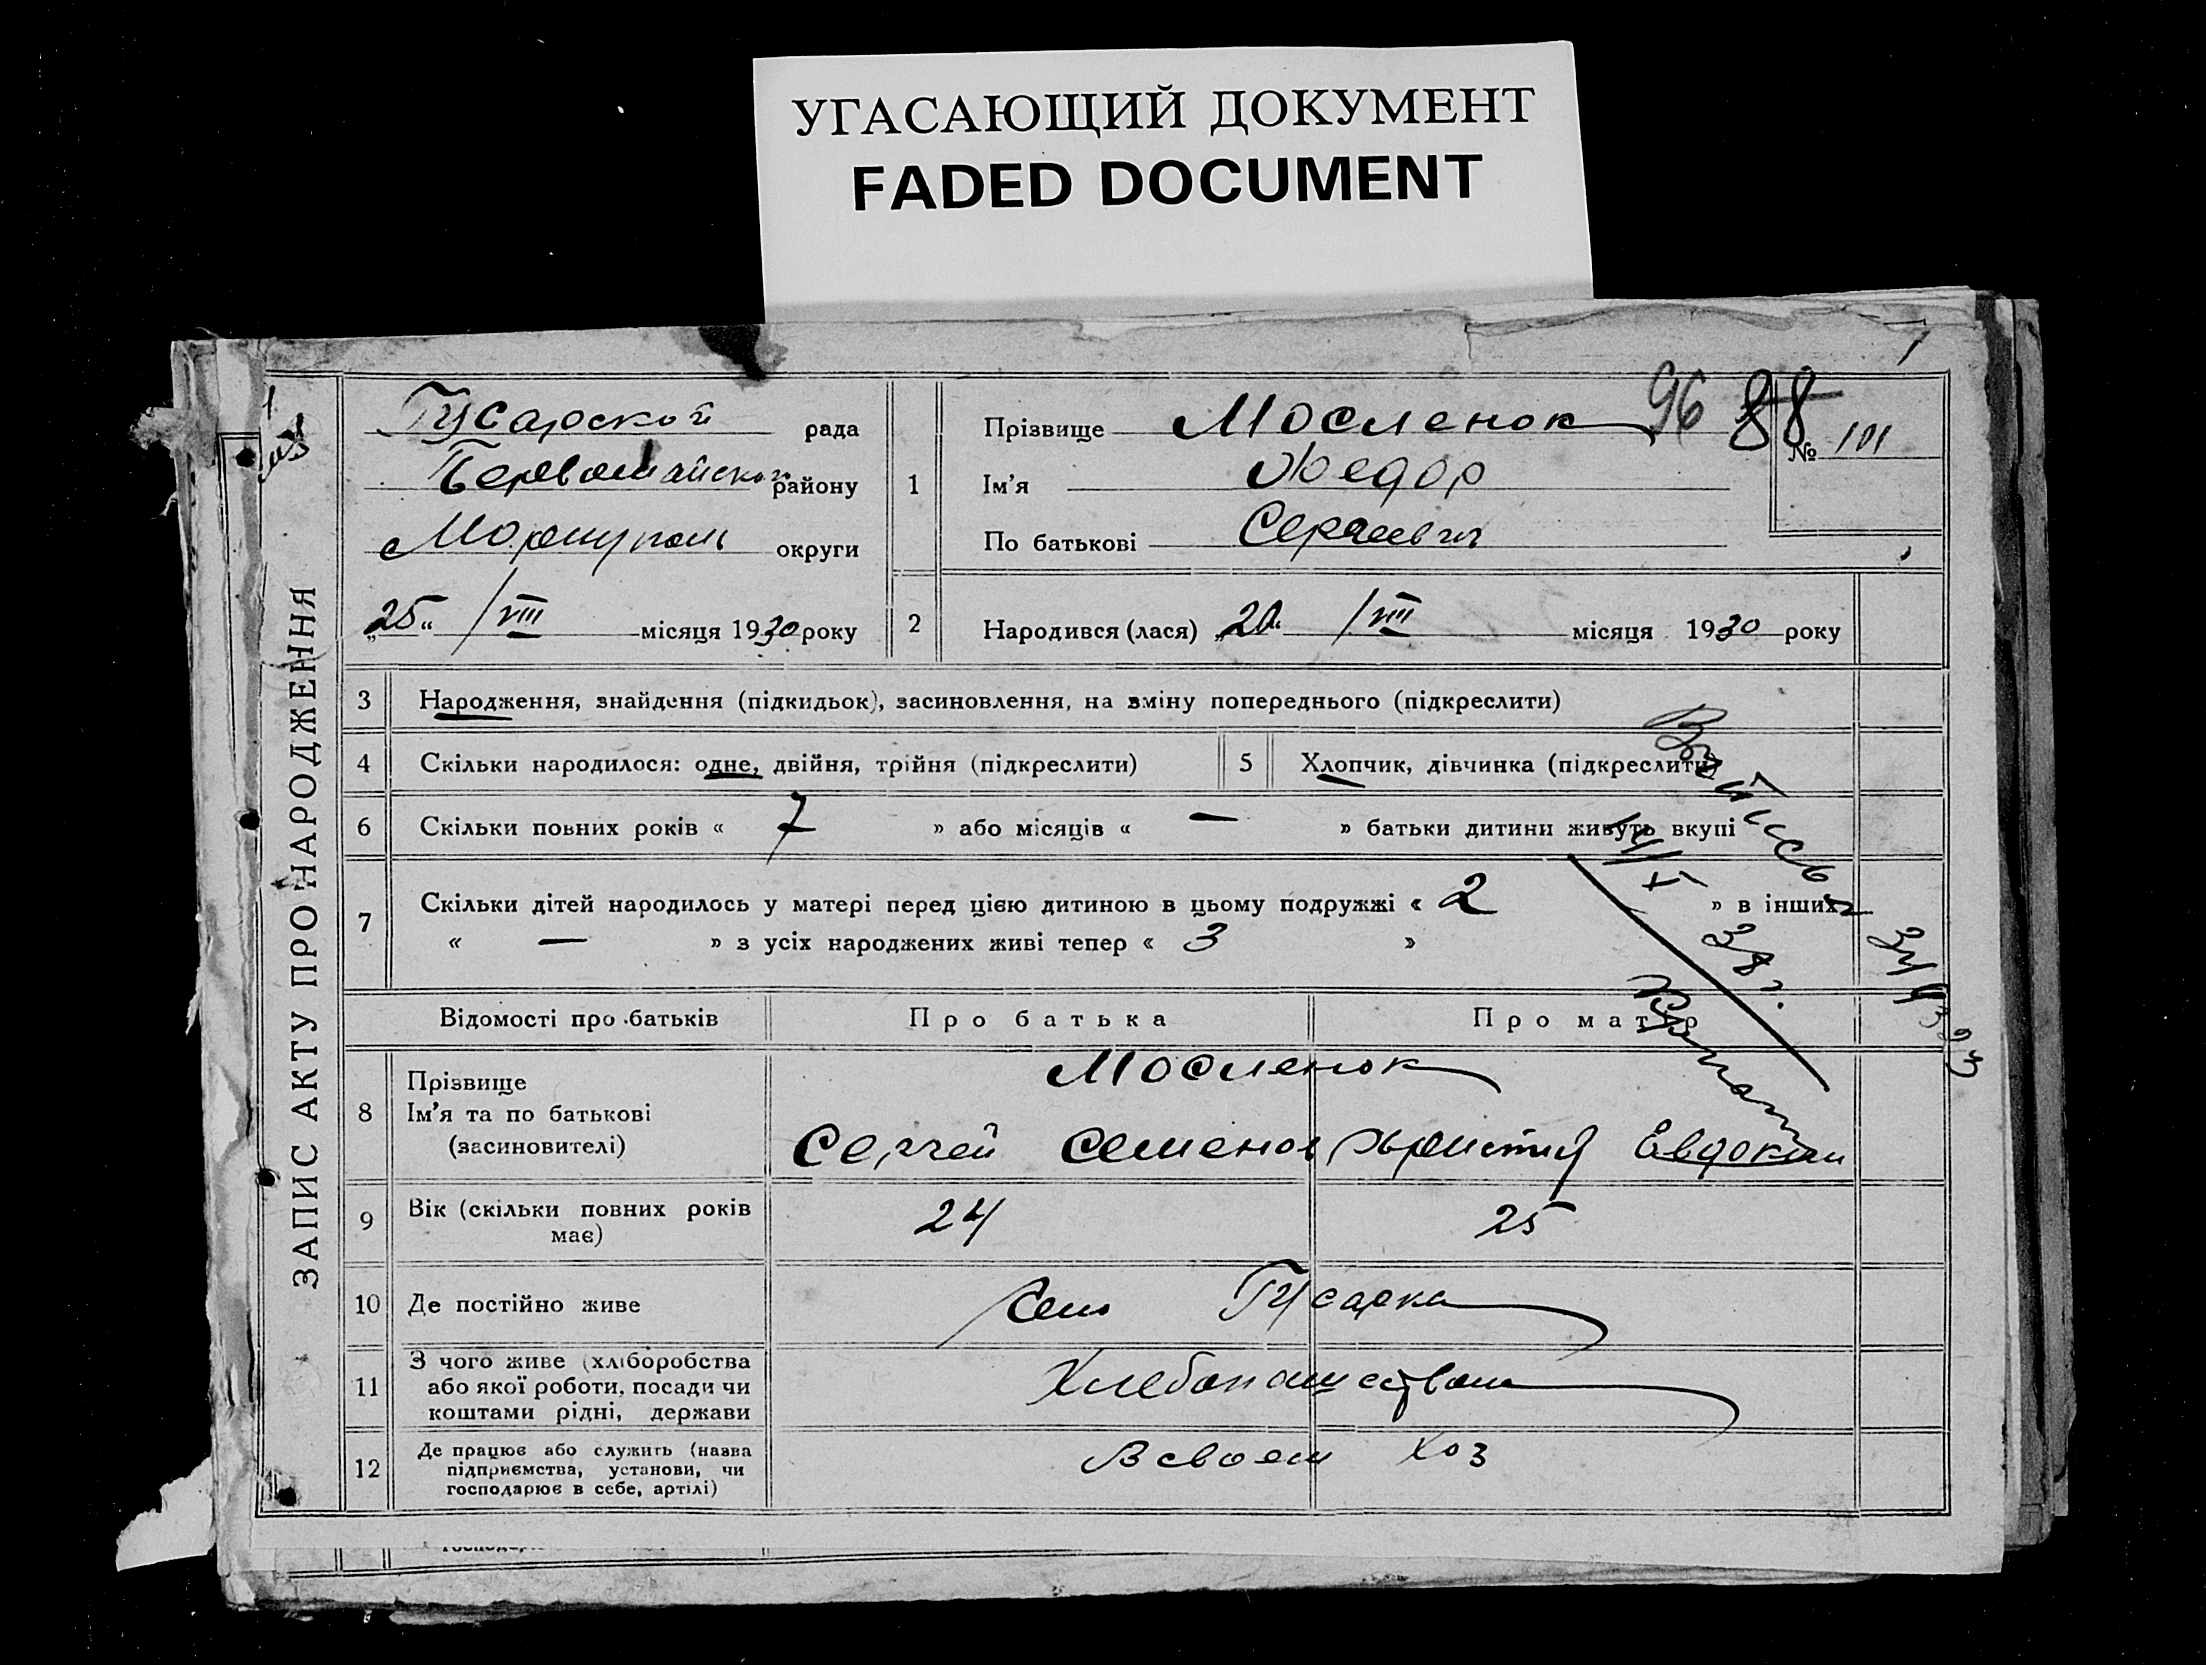 УГАСАЮЩИЙ ДОКУМЕНТ
FADED DOCUMENT
ЗАПИС АКТУ ПРО НАРОДЖЕННЯ
Гусарской рада
Первомайской району
Мариуполь округи
„25“ /VIII місяця 1930 року
96 88
№ 101
1 Прізвище Мосленок
Ім'я Федор
По батькові Сергеевич
2 Народився (лася) „20“ /VIII місяця 1930 року
3 Народження, знайдення (підкидьок), засиновлення, на зміну попереднього (підкреслити)
4 Скільки народилося: одне, двійня, трійня (підкреслити)
5 Хлопчик, дівчинка (підкреслити)
6 Скільки повних років « 7 » або місяців « — » батьки дитини живуть вкупі
7 Скільки дітей народилось у матері перед цією дитиною в цьому подружжі « 2 » в інших
« — » з усіх народжених живі тепер « 3 »
14/X 38 г.
Відомості про батьків
Про батька
Про матір
8 Прізвище
Ім'я та по батькові
(засиновителі)
Мосленок
Сергей Семенов Христия Евдоким
9 Вік (скільки повних років
має)
24
25
10 Де постійно живе
Село Гусарка
11 З чого живе (хліборобства
або якої роботи, посади чи
коштами рідні, держави
Хлебопашеством
12 Де працює або служить (назва
підприємства, установи, чи
господарює в себе, артілі)
В своем хоз